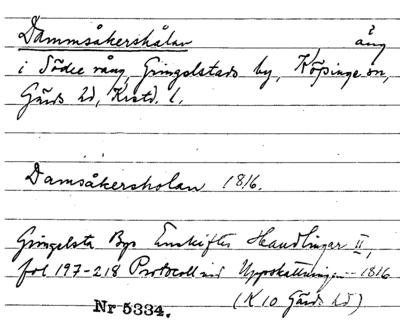 Dammsåkershålan äng
i Södre vång, Gringelstads by, Köpinge sn,
Gärds hd, Krstd. l.
Damsåkersholan 1816.
Gringelsta Bys Enskiftes Handlingar II,
fol 197-218 Protocoll vid Uppskattningen 1816
(K 10 Gärds hd)
Nr 5334.